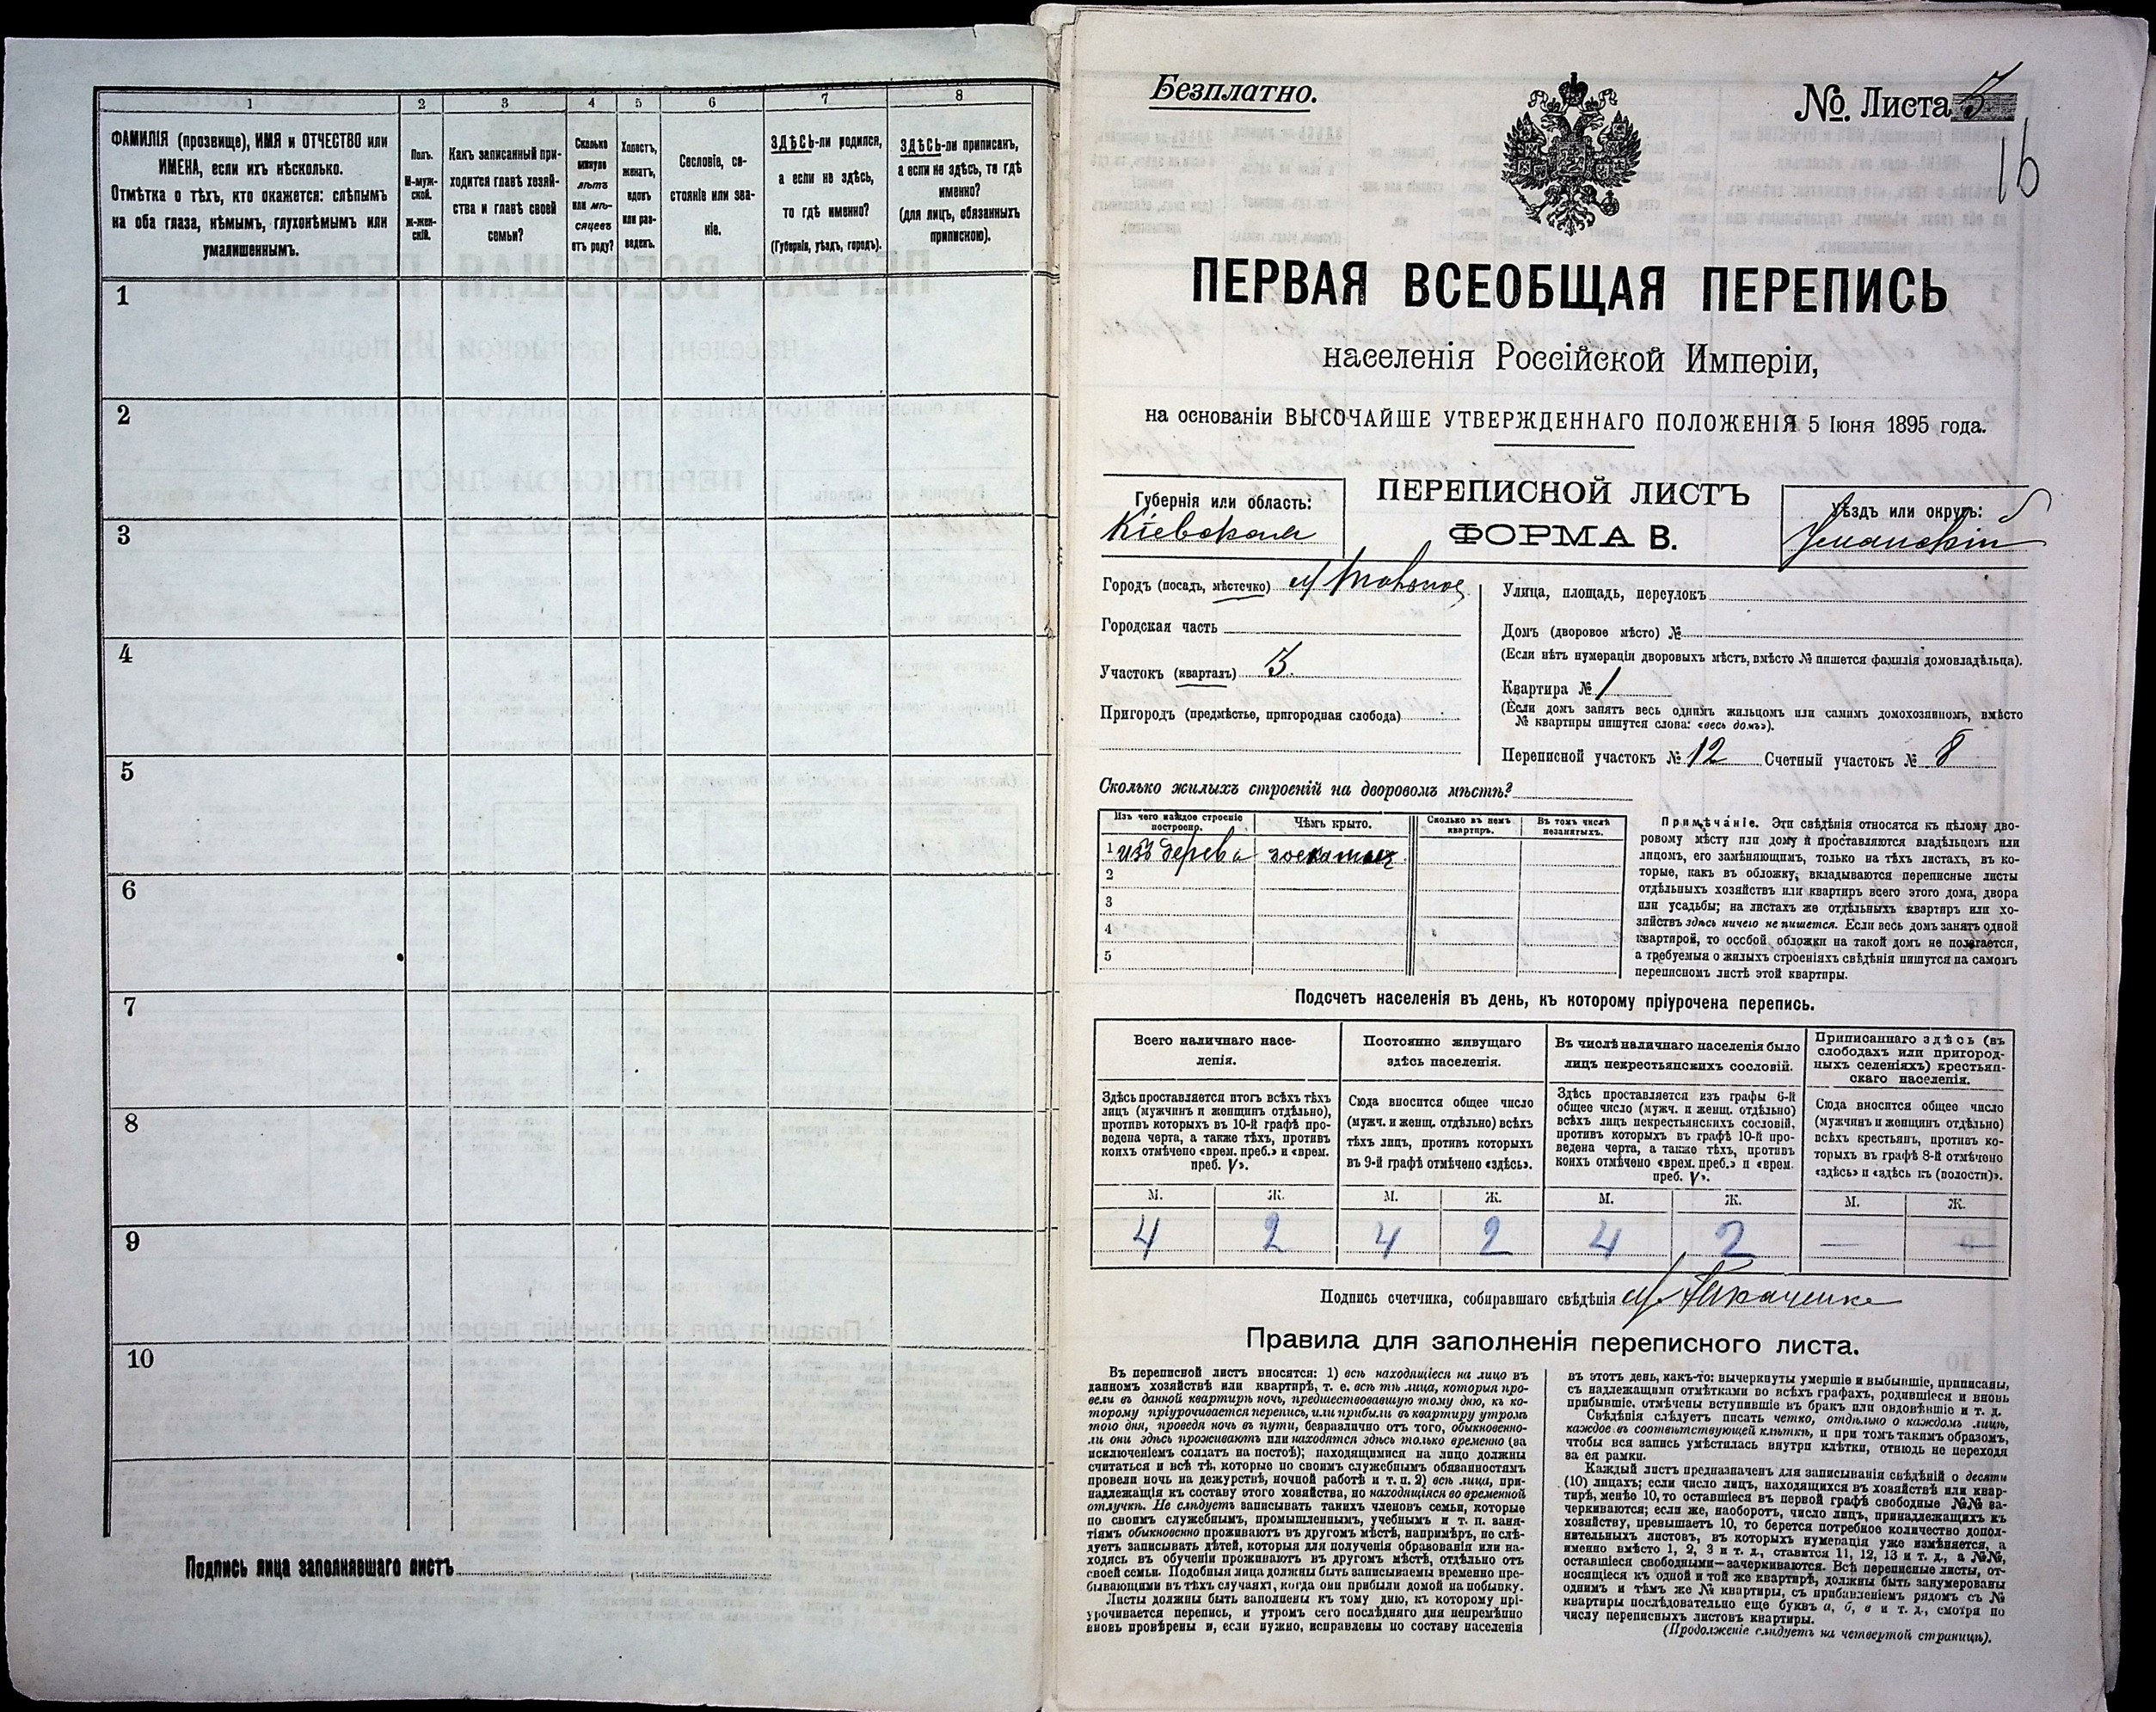 1
2
3
4
5
6
7
8
ФАМИЛІЯ (прозвище), ИМЯ и ОТЧЕСТВО или
ИМЕНА, если ихъ нѣсколько.
Отмѣтка о тѣхъ, кто окажется: слѣпымъ
на оба глаза, нѣмымъ, глухонѣмымъ или
умалишеннымъ.
Полъ.
М-муж-
ской.
Ж-жен-
скій.
Какъ записанный при-
ходится главѣ хозяй-
ства и главѣ своей
семьи?
Сколько
минуло
лѣтъ
или мѣ-
сяцевъ
отъ роду?
Холостъ,
женатъ,
вдовъ
или раз-
веденъ.
Сословіе, со-
стояніе или зва-
ніе.
ЗДѢСЬ-ли родился,
а если не здѣсь,
то гдѣ именно?
(Губернія, уѣздъ, городъ).
ЗДѢСЬ-ли приписанъ,
а если не здѣсь, то гдѣ
именно?
(для лицъ, обязанныхъ
припискою).
1
2
3
4
5
6
7
8
9
10
Подпись лица заполнявшаго листъ
Безплатно.
№. Листа
16
ПЕРВАЯ ВСЕОБЩАЯ ПЕРЕПИСЬ
населенія Россійской Имперіи,
на основаніи ВЫСОЧАЙШЕ УТВЕРЖДЕННАГО ПОЛОЖЕНІЯ 5 Іюня 1895 года.
Губернія или область:
Кіевская
ПЕРЕПИСНОЙ ЛИСТЪ
ФОРМА В.
Уѣздъ или округъ:
Уманскій
Городъ (посадъ, мѣстечко)
Городская часть
Участокъ (кварталъ) 3.
Пригородъ (предмѣстье, пригородная слобода)
Улица, площадь, переулокъ
Домъ (дворовое мѣсто) №
(Если нѣтъ нумераціи дворовыхъ мѣстъ, вмѣсто № пишется фамилія домовладѣльца).
Квартира № 1
(Если домъ занятъ весь однимъ жильцомъ или самимъ домохозяиномъ, вмѣсто
№ квартиры пишутся слова: «весь домъ»).
Переписной участокъ № 12 Счетный участокъ № 8
Сколько жилыхъ строеній на дворовомъ мѣстѣ?
Изъ чего каждое строеніе
построено.
Чѣмъ крыто.
Сколько въ немъ
квартиръ.
Въ томъ числѣ
незанятыхъ.
1 изъ дерева
2
3
4
5
Примѣчаніе. Эти свѣдѣнія относятся къ цѣлому дво-
ровому мѣсту или дому и проставляются владѣльцемъ или
лицомъ, его замѣняющимъ, только на тѣхъ листахъ, въ ко-
торые, какъ въ обложку, вкладываются переписные листы
отдѣльныхъ хозяйствъ или квартиръ всего этого дома, двора
или усадьбы; на листахъ же отдѣльныхъ квартиръ или хо-
зяйствъ здѣсь ничего не пишется. Если весь домъ занятъ одной
квартирой, то особой обложки на такой домъ не полагается,
а требуемыя о жилыхъ строеніяхъ свѣдѣнія пишутся на самомъ
переписномъ листѣ этой квартиры.
Подсчетъ населенія въ день, къ которому пріурочена перепись.
Всего наличнаго насе-
ленія.
Постоянно живущаго
здѣсь населенія.
Въ числѣ наличнаго населенія было
лицъ некрестьянскихъ сословій.
Приписаннаго здѣсь (въ
слободахъ или пригород-
ныхъ селеніяхъ) крестьян-
скаго населенія.
Здѣсь проставляется итогъ всѣхъ тѣхъ
лицъ (мужчинъ и женщинъ отдѣльно),
противъ которыхъ въ 10-й графѣ про-
ведена черта, а также тѣхъ, противъ
коихъ отмѣчено «врем. преб.» и «врем.
преб. V».
Сюда вносится общее число
(мужч. и женщ. отдѣльно) всѣхъ
тѣхъ лицъ, противъ которыхъ
въ 9-й графѣ отмѣчено «здѣсь».
Здѣсь проставляется изъ графы 6-й
общее число (мужч. и женщ. отдѣльно)
всѣхъ лицъ некрестьянскихъ сословій,
противъ которыхъ въ графѣ 10-й про-
ведена черта, а также тѣхъ, противъ
коихъ отмѣчено «врем. преб.» и «врем.
преб. V».
Сюда вносится общее число
(мужчинъ и женщинъ отдѣльно)
всѣхъ крестьянъ, противъ ко-
торыхъ въ графѣ 8-й отмѣчено
«здѣсь» и «здѣсь къ (волости)».
М. Ж. М. Ж. М. Ж. М. Ж.
4 2 4 2 4 2 — —
Подпись счетчика, собиравшаго свѣдѣнія
Правила для заполненія переписного листа.
Въ переписной листъ вносятся: 1) всѣ находящіеся на лицо въ
данномъ хозяйствѣ или квартирѣ, т. е. всѣ тѣ лица, которыя про-
вели въ данной квартирѣ ночь, предшествовавшую тому дню, къ ко-
торому пріурочивается перепись, или прибыли въ квартиру утромъ
того дня, проведя ночь въ пути, безразлично отъ того, обыкновенно-
ли они здѣсь проживаютъ или находятся здѣсь только временно (за
исключеніемъ солдатъ на постоѣ); находящимися на лицо должны
считаться и всѣ тѣ, которые по своимъ служебнымъ обязанностямъ
провели ночь на дежурствѣ, ночной работѣ и т. п. 2) всѣ лица, при-
надлежащія къ составу этого хозяйства, но находящіяся во временной
отлучкѣ. Не слѣдуетъ записывать такихъ членовъ семьи, которые
по своимъ служебнымъ, промышленнымъ, учебнымъ и т. п. заня-
тіямъ обыкновенно проживаютъ въ другомъ мѣстѣ, напримѣръ, не слѣ-
дуетъ записывать дѣтей, которыя для полученія образованія или на-
ходясь въ обученіи проживаютъ въ другомъ мѣстѣ, отдѣльно отъ
своей семьи. Подобныя лица должны быть записываемы временно пре-
бывающими въ тѣхъ случаяхъ, когда они прибыли домой на побывку.
Листы должны быть заполнены къ тому дню, къ которому прі-
урочивается перепись, и утромъ сего послѣдняго дня непремѣнно
вновь провѣрены и, если нужно, исправлены по составу населенія
въ этотъ день, какъ-то: вычеркнуты умершіе и выбывшіе, приписаны,
съ надлежащими отмѣтками во всѣхъ графахъ, родившіеся и вновь
прибывшіе, отмѣчены вступившіе въ бракъ или овдовѣвшіе и т. д.
Свѣдѣнія слѣдуетъ писать четко, отдѣльно о каждомъ лицѣ,
каждое въ соотвѣтствующей клѣткѣ, и при томъ такимъ образомъ,
чтобы вся запись умѣстилась внутри клѣтки, отнюдь не переходя
за ея рамки.
Каждый листъ предназначенъ для записыванія свѣдѣній о десяти
(10) лицахъ; если число лицъ, находящихся въ хозяйствѣ или квар-
тирѣ, менѣе 10, то оставшіеся въ первой графѣ свободные №№ за-
черкиваются; если же, наоборотъ, число лицъ, принадлежащихъ къ
хозяйству, превышаетъ 10, то берется потребное количество допол-
нительныхъ листовъ, въ которыхъ нумерація уже измѣняется, а
именно вмѣсто 1, 2, 3 и т. д., ставится 11, 12, 13 и т. д., а №№,
оставшіеся свободными—зачеркиваются. Всѣ переписные листы, от-
носящіеся къ одной и той же квартирѣ, должны быть занумерованы
однимъ и тѣмъ же № квартиры, съ прибавленіемъ рядомъ съ №
квартиры послѣдовательно еще буквъ а, б, в и т. д., смотря по
числу переписныхъ листовъ квартиры.
(Продолженіе слѣдуетъ на четвертой страницѣ).